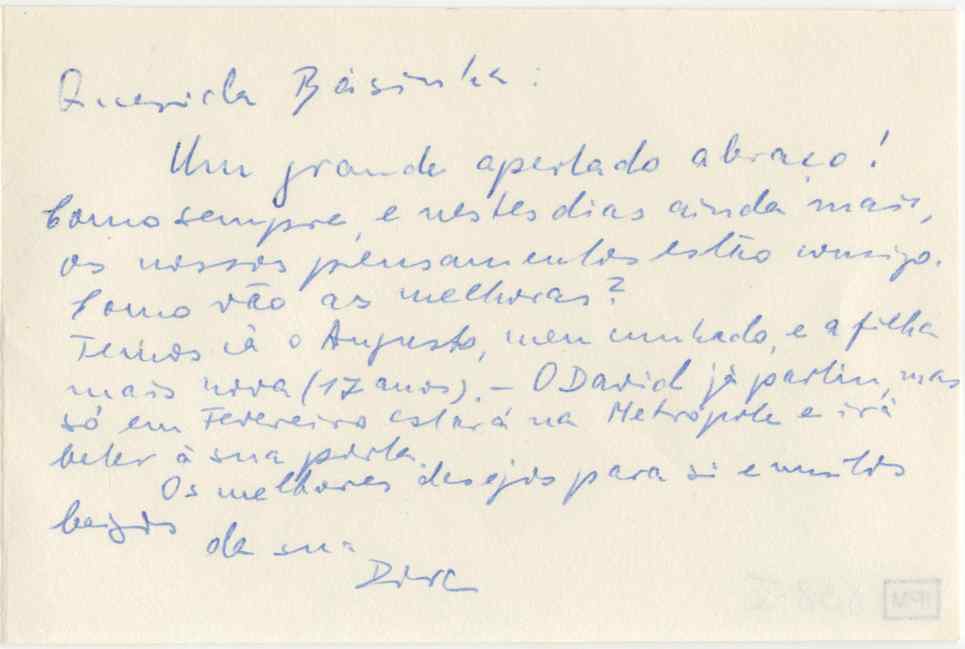 Querida Básinha:
Um grande apertado abraço!
Como sempre, e nestes dias ainda mais,
os nossos pensamentos estão consigo.
Como vão as melhoras?
Temos cá o Augusto, meu cunhado, e a filha
mais nova (17 anos). — O David já partiu, mas
só em Fevereiro estará na Metrópole e irá
bater à sua porta.
Os melhores desejos para si e muitos
beijos
da sua